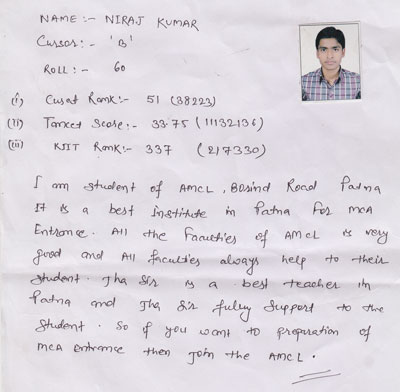 NAME :- NIRAJ KUMAR
Cursor :- 'B'
ROLL :- 60
(i) Cusat Rank :- 51 (38223)
(ii) Tancet Score :- 33.75 (11132136)
(iii) KIIT Rank :- 337 (217330)
I am student of AMCL, Boring Road Patna
It is a best Institute in Patna for MCA
Entrance. All the Faculties of AMCL is very
good and All faculties always help to their
student. Jha Sir is a best teacher in
Patna and Jha Sir fully Support to the
Student. So if you want to preparation of
MCA entrance then Join the AMCL.